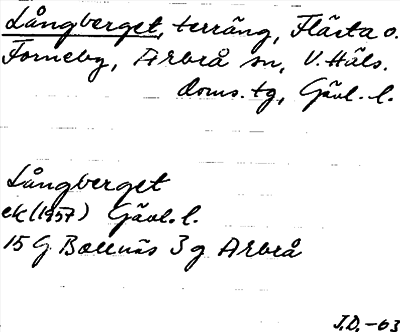 Långberget, terräng, Flästa o.
Forneby, Arbrå sn, V. Häls.
doms. tg, Gävl. l.
Långberget
ek (1957) Gävl. l.
15 G Bollnäs 3 g Arbrå
J.D. -63